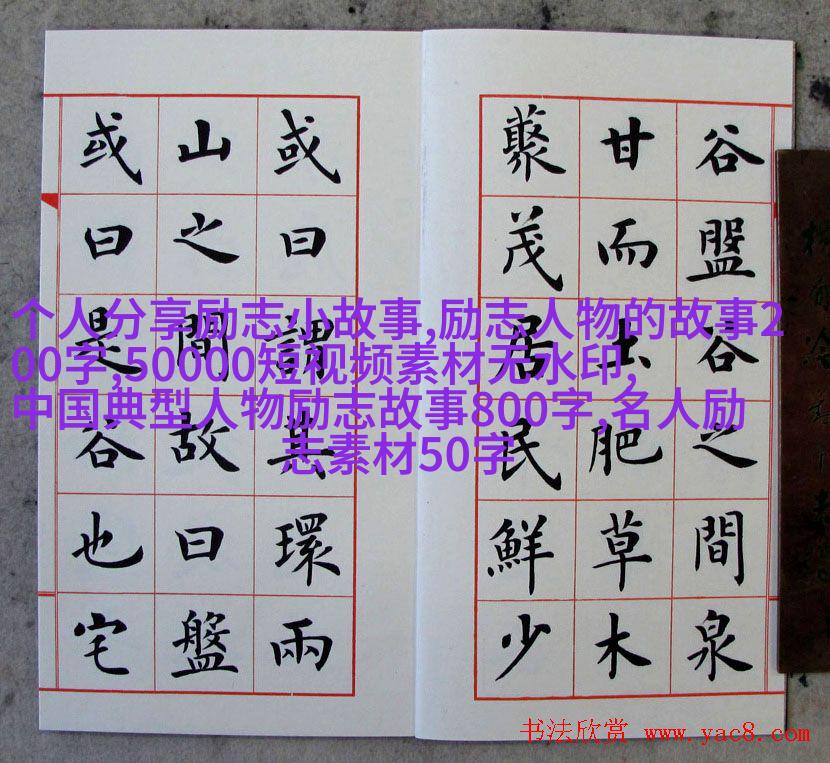 谷盤谷之間泉
甘而土肥草木
藂茂居民鮮少
或曰謂其環兩
山之間故曰盤
或曰是谷也宅
个人分享励志小故事,励志人物的故事2
00字,50000短视频素材无水印,
中国典型人物励志故事800字,名人励
志素材50字
书法欣赏 www.yac8.com